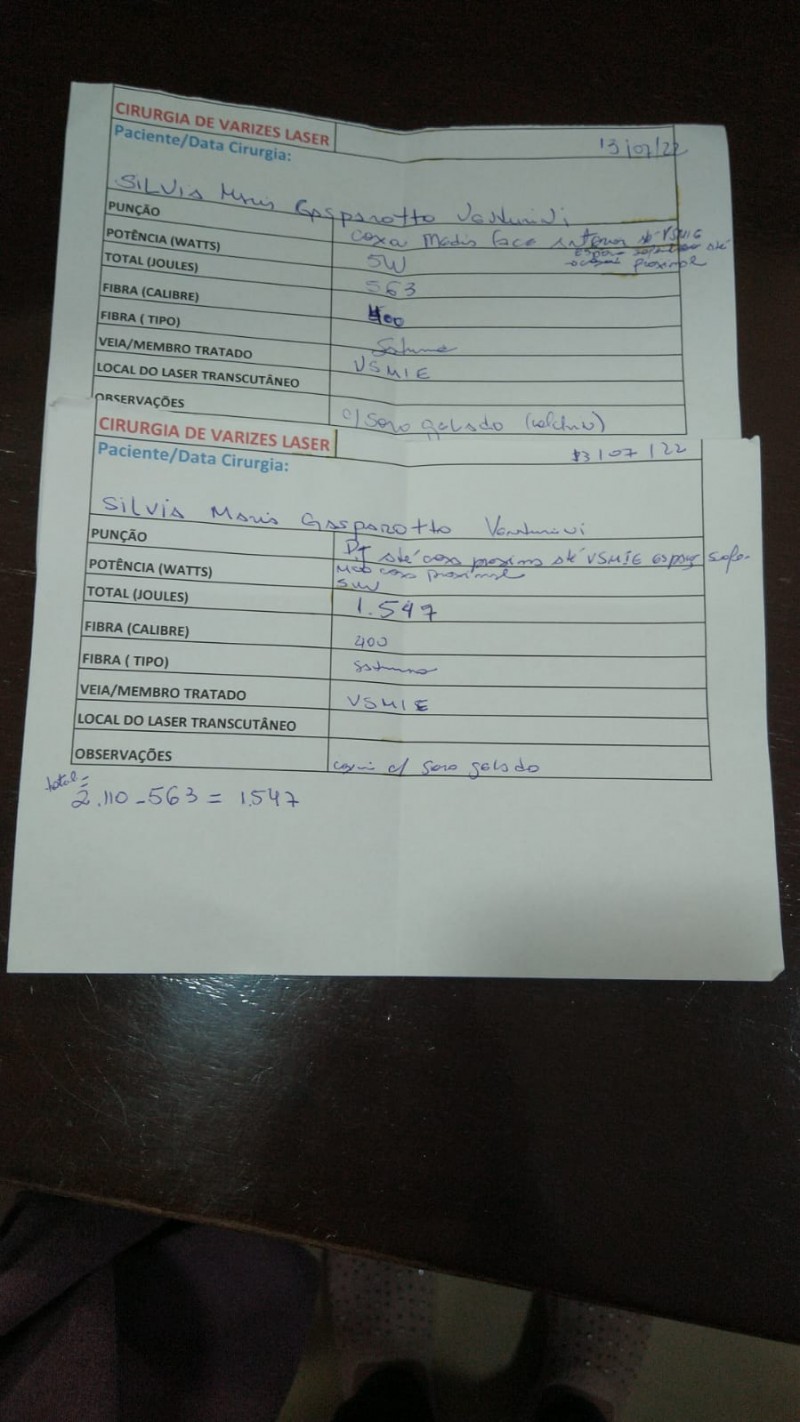 CIRURGIA DE VARIZES LASER
Paciente/Data Cirurgia: 13/07/22
Silvia Maris Gasparotto Venturini
PUNÇÃO coxa Media face anterior até VSMIE
até proximal
POTÊNCIA (WATTS) 5W
TOTAL (JOULES) 563
FIBRA (CALIBRE) 400
FIBRA ( TIPO)
VEIA/MEMBRO TRATADO VSMIE
LOCAL DO LASER TRANSCUTÂNEO
OBSERVAÇÕES c/ soro gelado
CIRURGIA DE VARIZES LASER
Paciente/Data Cirurgia: 13/07/22
Silvia Maris Gasparotto Venturini
PUNÇÃO até coxa proxima até VSMIE
coxa proximal
POTÊNCIA (WATTS) 5W
TOTAL (JOULES) 1.547
FIBRA (CALIBRE) 400
FIBRA ( TIPO)
VEIA/MEMBRO TRATADO VSMIE
LOCAL DO LASER TRANSCUTÂNEO
OBSERVAÇÕES c/ soro gelado
total=
2.110-563 = 1.547